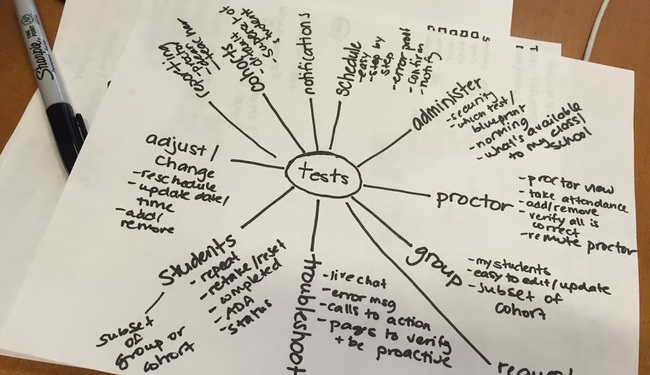 Sharpie
tests
reporting
cohorts
- subset of
student
notifications
schedule
- easy
- step by
step
- error proof
- confirm
- notify
administer
- security
- which test/
blueprint
- norming
- what's available
to my class/
school
proctor
- proctor view
- take attendance
- add/remove
- verify all is
correct
- remote proctor
group
- my students
- easy to edit/update
- subset of
cohort
troubleshoot
- live chat
- error msg
- calls to action
- pages to verify
+ be proactive
students
- repeat
- retake/reset
- completed
- ADA
- status
subset
of
group or
cohort
adjust/
change
- reschedule
- update date/
time
- add/
remove